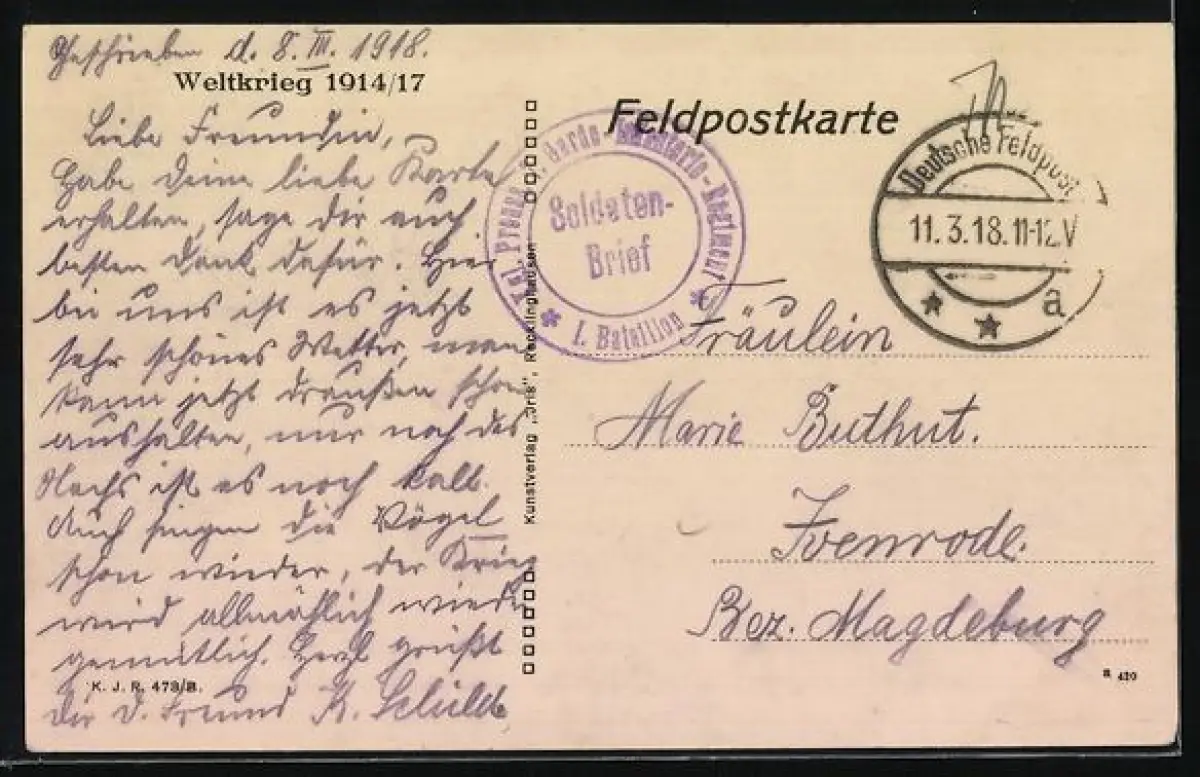 Geschrieben d. 8. III. 1918.
Weltkrieg 1914/17
Liebe Freundin,
Habe deine liebe Karte
erhalten, sage dir auch
besten Dank dafür. Hier
bei uns ist es jetzt
sehr schönes Wetter, man
kann jetzt draußen schon
aushalten, nur noch des
Nachs ist es noch kalt.
Auch singen die Vögel
schon wieder, der Krieg
wird allmählich wieder
gemütlich. Herzl grüßt
K. J. R. 473/8.
dir d. Freund K.
Kunstverlag „Iris", Recklinghausen
Feldpostkarte
Garde-Infanterie-Regiment
Soldaten-
Brief
I. Bataillon
Deutsche Feldpost
11.3.18.11-12V
a
Fräulein
Marie Buthut.
Ivenrode.
Bez. Magdeburg
420